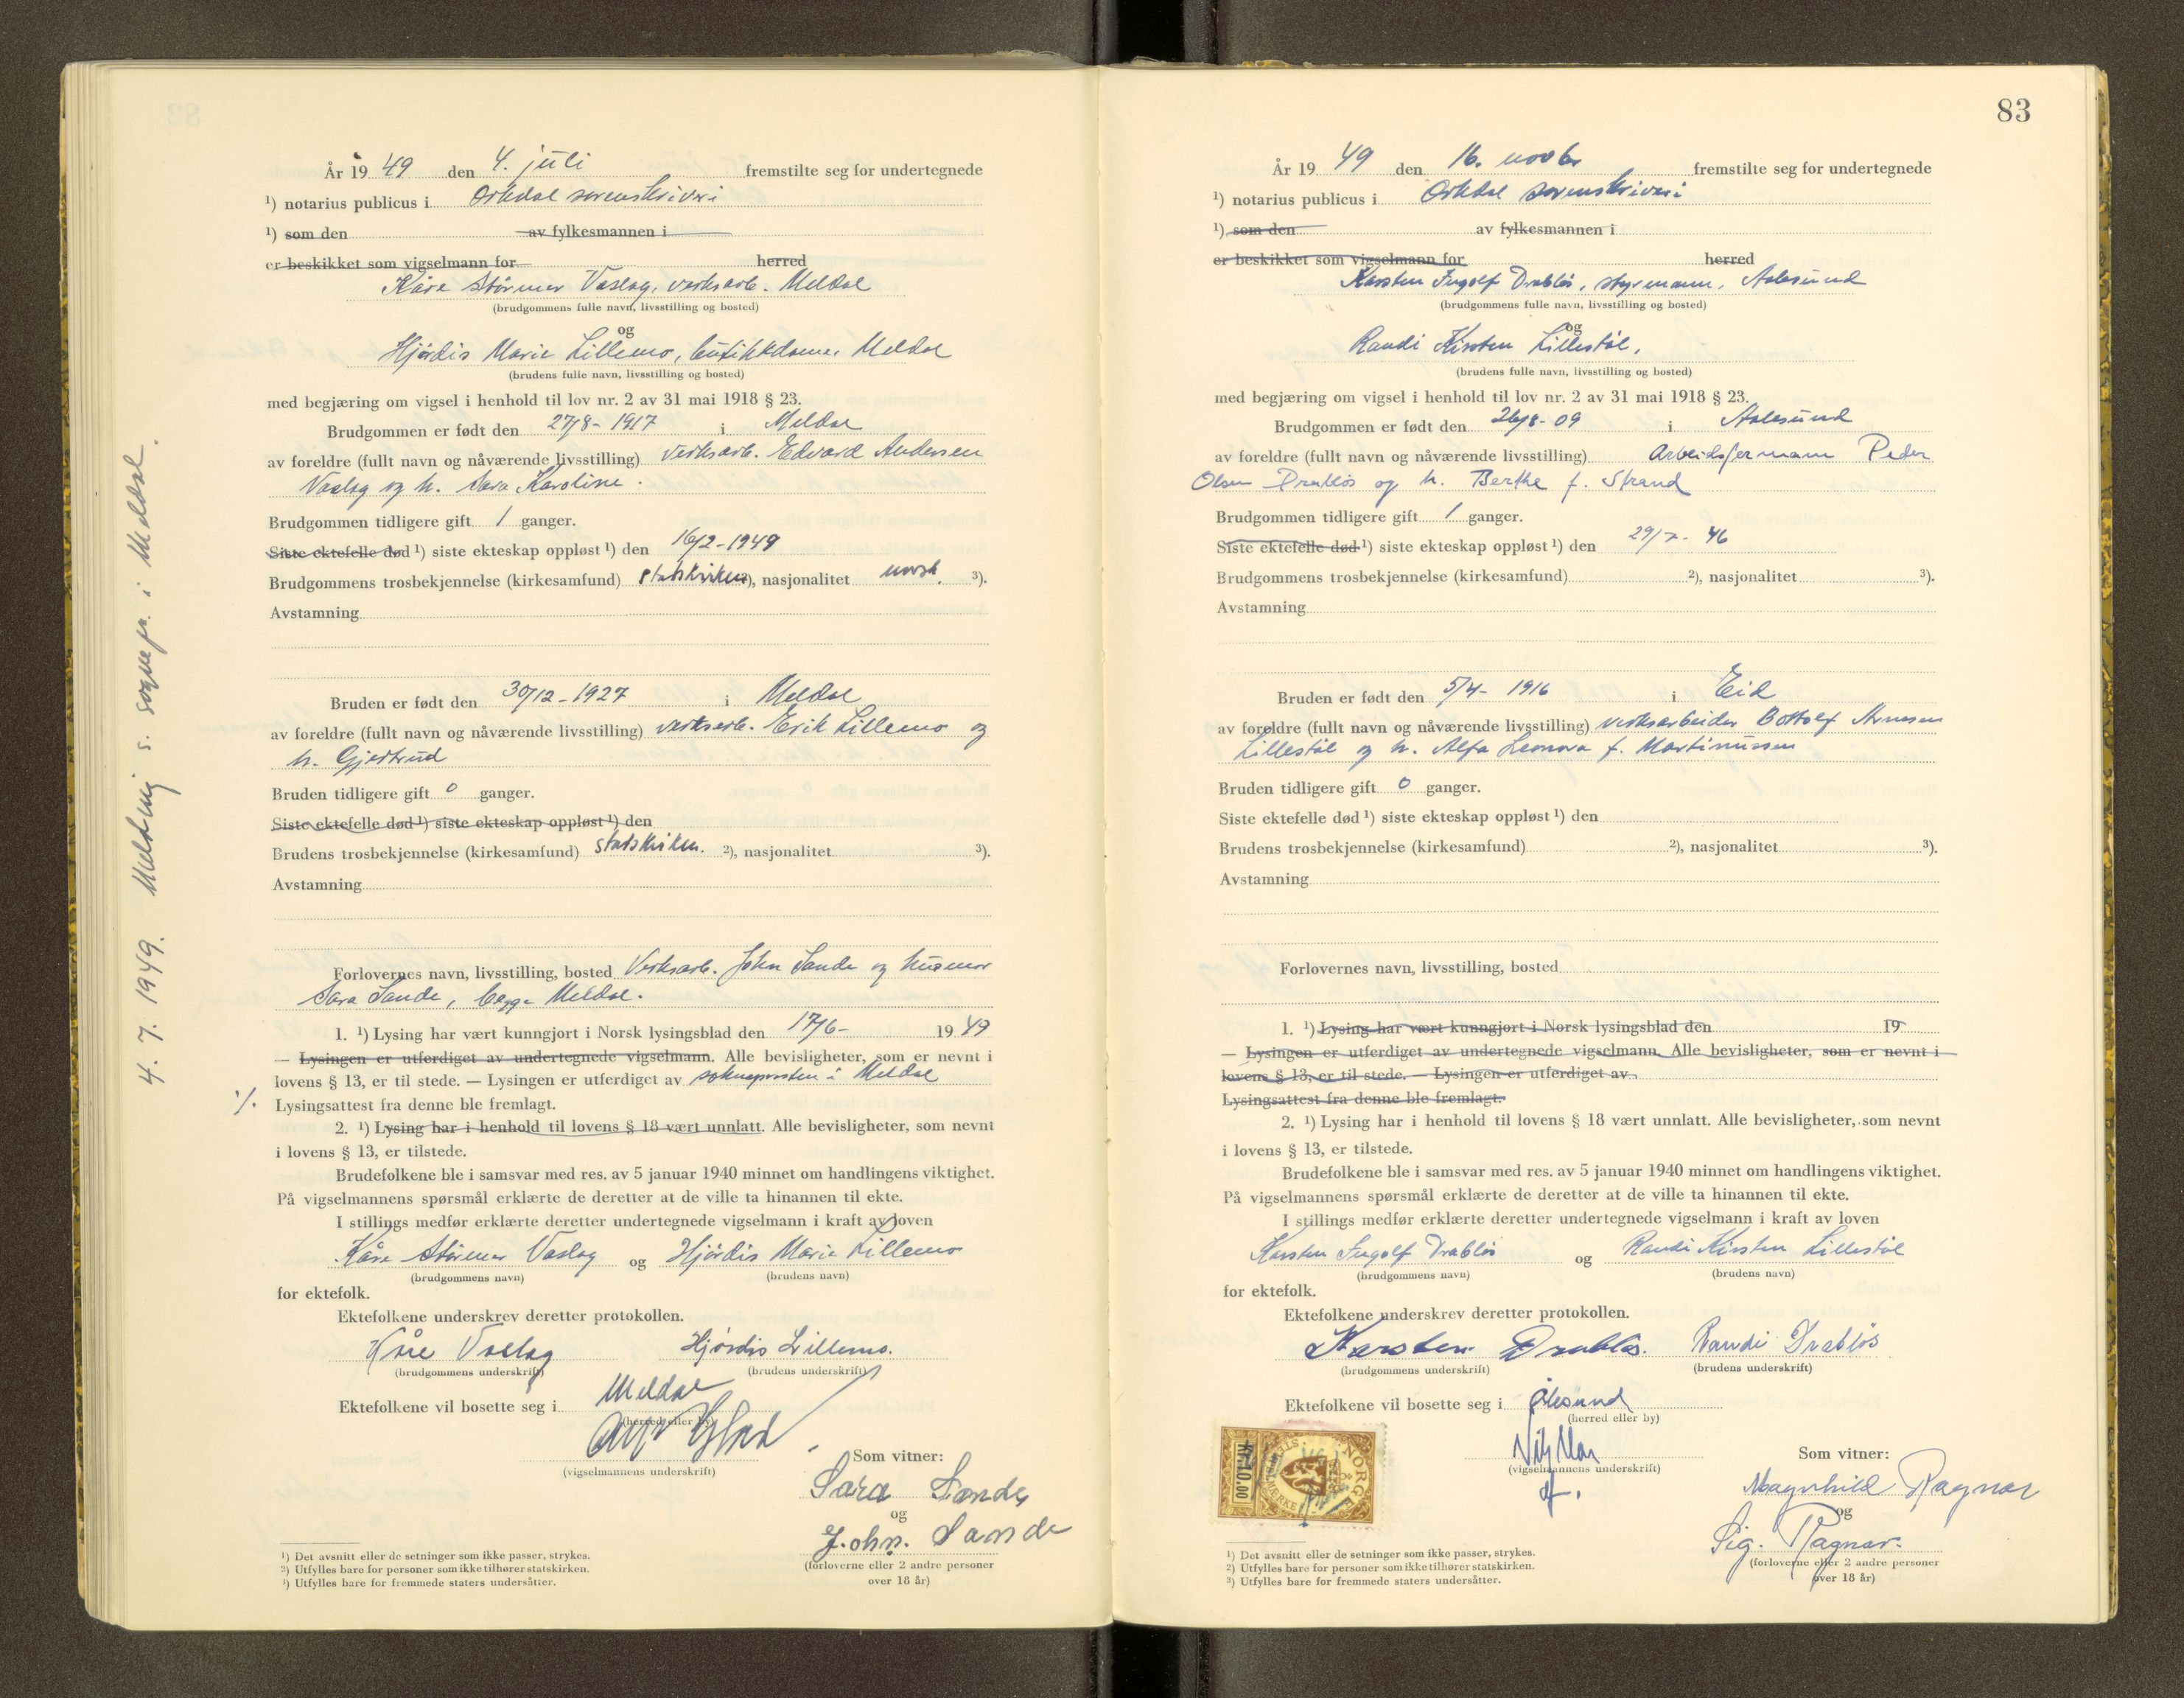 År 19 49 den 4. juli fremstilte seg for undertegnede
¹) notarius publicus i Orkdal sorenskriveri
¹) som den av fylkesmannen i
er beskikket som vigselmann for herred
Kåre Størmer Vaslag, verksarb. Meldal
(brudgommens fulle navn, livsstilling og bosted)
og
Hjördis Marie Lillemo, butikkdame, Meldal
(brudens fulle navn, livsstilling og bosted)
med begjæring om vigsel i henhold til lov nr. 2 av 31 mai 1918 § 23.
Brudgommen er født den 27/8- 1917 i Meldal
av foreldre (fullt navn og nåværende livsstilling) verksarb. Edvard Andersen
Vaslag og h. Sara Karoline.
Brudgommen tidligere gift 1 ganger.
Siste ektefelle død ¹) siste ekteskap oppløst ¹) den 16/2-1949
Brudgommens trosbekjennelse (kirkesamfund) statskirken ²), nasjonalitet norsk. ³).
Avstamning
Bruden er født den 30/12-1927 i Meldal
av foreldre (fullt navn og nåværende livsstilling) verksarb. Erik Lillemo og
h. Gjertrud
Bruden tidligere gift 0 ganger.
Siste ektefelle død ¹) siste ekteskap oppløst ¹) den
Brudens trosbekjennelse (kirkesamfund) statskirken. ²), nasjonalitet ³).
Avstamning
Forlovernes navn, livsstilling, bosted Verksarb. John Sande og husmor
Sara Sande, begge Meldal.
1. ¹) Lysing har vært kunngjort i Norsk lysingsblad den 17/6- 19 49
— Lysingen er utferdiget av undertegnede vigselmann. Alle bevisligheter, som er nevnt i
lovens § 13, er til stede. — Lysingen er utferdiget av sokneprosten i Meldal
·/. Lysingsattest fra denne ble fremlagt.
2. ¹) Lysing har i henhold til lovens § 18 vært unnlatt. Alle bevisligheter, som nevnt
i lovens § 13, er tilstede.
Brudefolkene ble i samsvar med res. av 5 januar 1940 minnet om handlingens viktighet.
På vigselmannens spørsmål erklærte de deretter at de ville ta hinannen til ekte.
I stillings medfør erklærte deretter undertegnede vigselmann i kraft av loven
Kåre Størmer Vaslag og Hjördis Marie Lillemo
(brudgommens navn) (brudens navn)
for ektefolk.
Ektefolkene underskrev deretter protokollen.
Kåre Vaslag Hjördis Lillemo.
(brudgommens underskrift) (brudens underskrift)
Ektefolkene vil bosette seg i Meldal
(herred eller by)
(vigselmannens underskrift)
Som vitner:
Sara Sande
og
John. Sande
(forloverne eller 2 andre personer
over 18 år)
¹) Det avsnitt eller de setninger som ikke passer, strykes.
²) Utfylles bare for personer som ikke tilhører statskirken.
³) Utfylles bare for fremmede staters undersåtter.
4. 7. 1949. Melding s. sognepr. i Meldal.
83
År 19 49 den 16. novbr fremstilte seg for undertegnede
¹) notarius publicus i Orkdal sorenskriveri
¹) som den av fylkesmannen i
er beskikket som vigselmann for herred
Karsten Ingolf Drabløs, styrmann, Aalesund
(brudgommens fulle navn, livsstilling og bosted)
og
Randi Kirsten Lillestöl,
(brudens fulle navn, livsstilling og bosted)
med begjæring om vigsel i henhold til lov nr. 2 av 31 mai 1918 § 23.
Brudgommen er født den 26/8- 09 i Aalesund
av foreldre (fullt navn og nåværende livsstilling) Arbeidsformann Peder
Olsen Drabløs og h. Berthe f. Strand
Brudgommen tidligere gift 1 ganger.
Siste ektefelle død ¹) siste ekteskap oppløst ¹) den 29/7- 46
Brudgommens trosbekjennelse (kirkesamfund) ²), nasjonalitet ³).
Avstamning
Bruden er født den 5/4- 1916 i Eid
av foreldre (fullt navn og nåværende livsstilling) verksarbeider Bottolf Arnesen
Lillestöl og h. Alfa Leonora f. Martinussen
Bruden tidligere gift 0 ganger.
Siste ektefelle død ¹) siste ekteskap oppløst ¹) den
Brudens trosbekjennelse (kirkesamfund) ²), nasjonalitet ³).
Avstamning
Forlovernes navn, livsstilling, bosted
1. ¹) Lysing har vært kunngjort i Norsk lysingsblad den 19
— Lysingen er utferdiget av undertegnede vigselmann. Alle bevisligheter, som er nevnt i
lovens § 13, er til stede. — Lysingen er utferdiget av
Lysingsattest fra denne ble fremlagt.
2. ¹) Lysing har i henhold til lovens § 18 vært unnlatt. Alle bevisligheter, som nevnt
i lovens § 13, er tilstede.
Brudefolkene ble i samsvar med res. av 5 januar 1940 minnet om handlingens viktighet.
På vigselmannens spørsmål erklærte de deretter at de ville ta hinannen til ekte.
I stillings medfør erklærte deretter undertegnede vigselmann i kraft av loven
Karsten Ingolf Drabløs og Randi Kirsten Lillestöl
(brudgommens navn) (brudens navn)
for ektefolk.
Ektefolkene underskrev deretter protokollen.
Karsten Drabløs. Randi Drabløs
(brudgommens underskrift) (brudens underskrift)
Ektefolkene vil bosette seg i Ålesund
(herred eller by)
(vigselmannens underskrift)
NORGE
Kr. 10.00
Som vitner:
Magnhild Ragnar
og
Sig. Ragnar.
(forloverne eller 2 andre personer
over 18 år)
¹) Det avsnitt eller de setninger som ikke passer, strykes.
²) Utfylles bare for personer som ikke tilhører statskirken.
³) Utfylles bare for fremmede staters undersåtter.